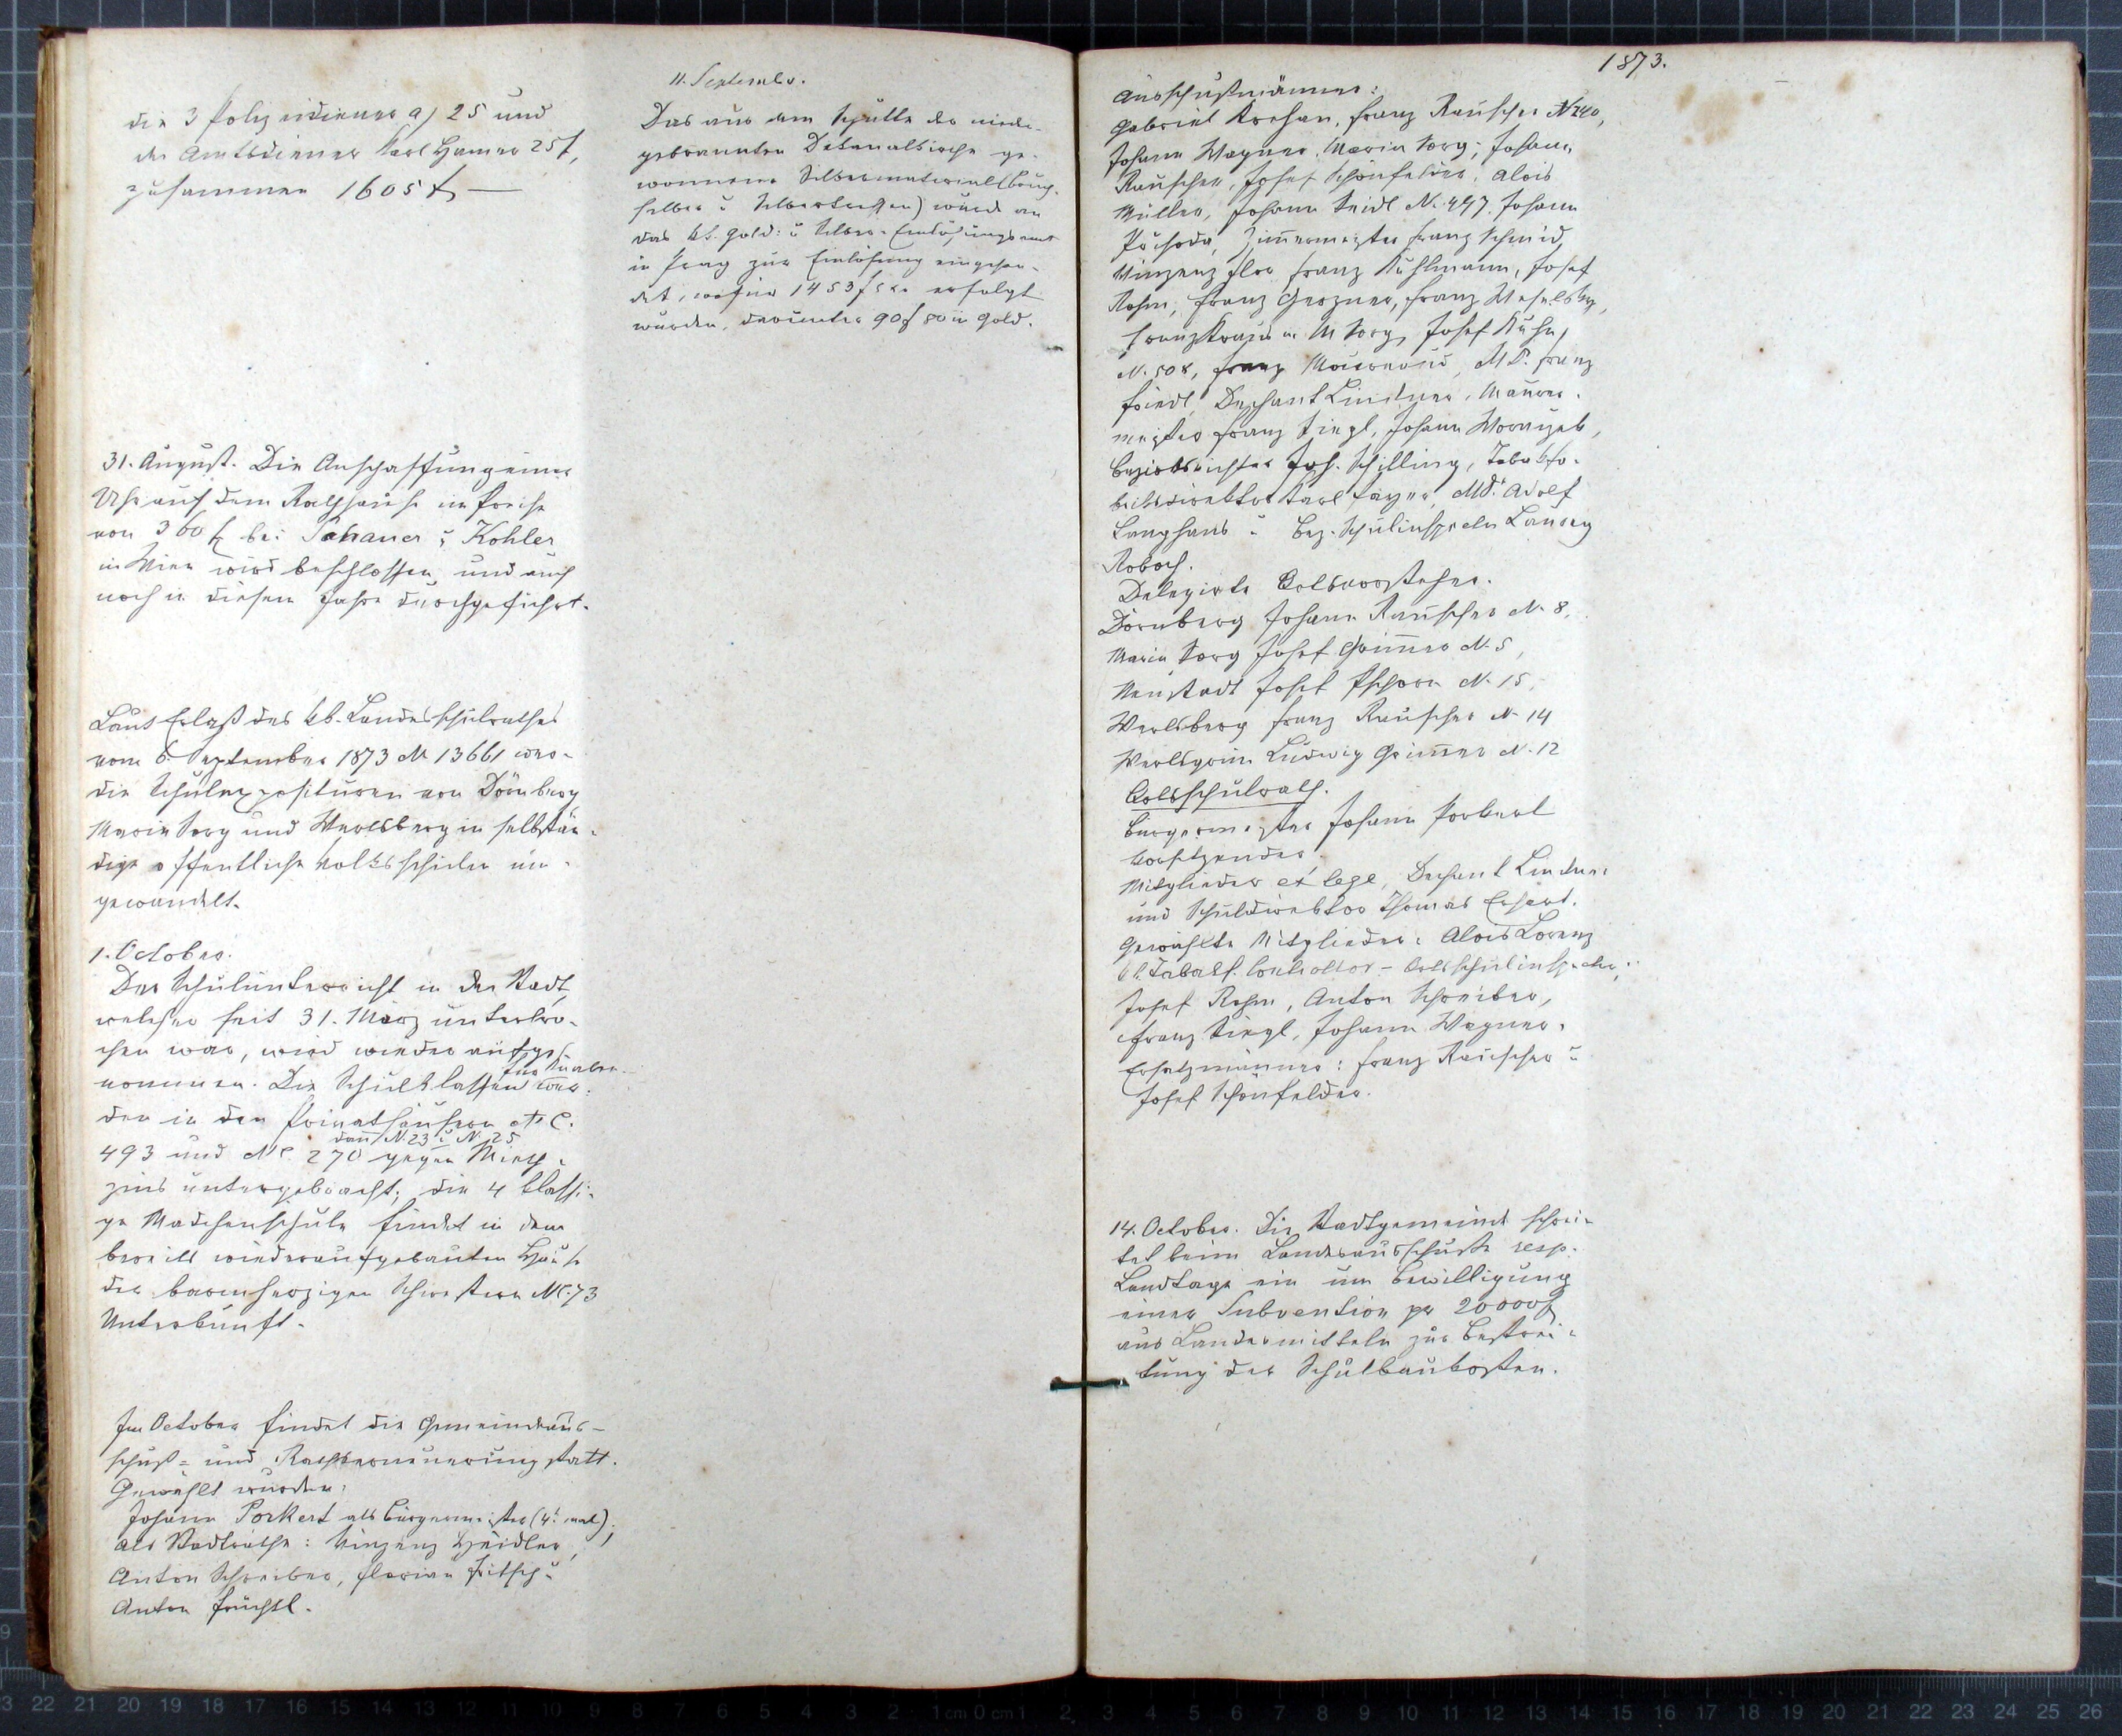 die 3 Polizeidiener a) 25 und
der Amtsdiener Karl Hamer 25 f,
zusammen 1605 f —
31. August. Die Anschaffung einer
Uhr auf dem Rathhause im Preise
von 360 f bei Schauer u Kohler
in Wien wird beschlossen, und auch
noch in diesem Jahre durchgeführt.
Laut Erlaß des kk. Landesschulrathes
vom 6. September 1873 N 13661 wer-
die Schulexposituren von Dörnberg
Maria Sorg und Werlsberg in selbstän-
dige öffentliche Volksschulen um-
gewandelt.
1. October.
Der Schulunterricht in der Stadt,
welcher seit 31. März unterbro-
chen war, wird wieder aufge-
nommen. Die Schulklassen für Knaben wer-
den in den Privathäusern N C.
493 und NC. 270 dann N. 23 u N. 25 gegen Mieth-
zins untergebracht; die 4 klassi-
ge Mädchenschule findet in dem
bereits wiederaufgebauten Hause
der barmherzigen Schwestern NC. 73
Unterkunft.
Im October findet die Gemeindeaus-
schuß- und Rathserneuerung statt.
Gewählt wurden:
Johann Porkert als Bürgermeister (4. mal);
als Stadträthe: Vinzenz Heidler,
Anton Schreiber, Florian Fritsch u
Anton Früchtl.
11. September.
Das aus dem Schutte der nieder-
gebrannten Dekanalkirche ge-
wonnene Silbermaterial (Bruch-
silber u Silberkuchen) wurde an
das kk. Gold- u Silber-Einlösungsamt
in Prag zur Einlösung eingesen-
det, wofür 1453 f erfolgt
wurden, darunter 90 f 80 in Gold.
1873.
Ausschußmänner:
Gabriel Krehan, Franz Rauscher N 240,
Johann Wagner, Maria Sorg; Johann
Rauscher, Josef Schönfelder, Alois
Müller, Johann Seidl N. 447. Johann
Zimmermeister Franz Schmid,
Vinzenz Flor Franz Kuhlmann, Josef
Rohm, Franz Gerzner, Franz
Franz Kraus in M Sorg, Josef Kuhn,
N. 508, Franz MD. Franz
Friedl, Dechant Lindner, Maurer-
meister Franz Siegl, Johann Worniczek,
Bezirksrichter Joh. Schilling, Tabakfa-
briksdirektor Karl MDr. Adolf
Langhans u Bez. Schulinspector Laurenz
Delegirte Ortsvorsteher.
Dörnberg Johann Rauscher N. 8,
Maria Sorg Josef Grimmer N. 5,
Neustadt Josef Pschorn N. 15,
Werlsberg Franz Rauscher N. 14
Werlsgrün Ludwig Grimmer N. 12
Ortsschulrath.
Bürgermeister Johann Porkert
Vorsitzender,
Mitglieder ex lege, Dechant Lindner
und Schuldirektor Thomas Erhart.
Gewählte Mitglieder: Alois Lorenz
kk. Tabakf. Controllor - Ortsschulinspector,
Josef Rohm, Anton Schreiber,
Franz Siegl, Johann Wagner.
Ersatzmänner: Franz Rauscher u
Josef Schönfelder.
14. October. Die Stadtgemeinde schrei-
tet beim Landesausschuße resp.
Landtage ein um Bewilligung
einer Subvention per 20000 f
aus Landesmitteln zur Bestrei-
tung der Schulbaukosten.